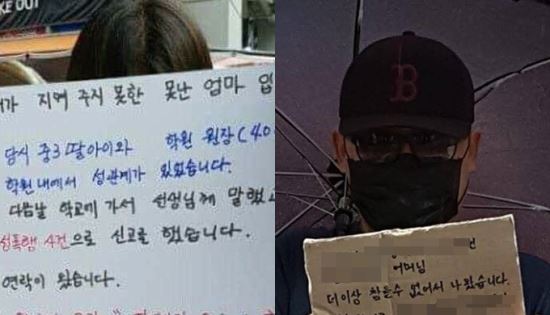 KE OUT
가 지켜 주지 못한 못난 엄마 입
당시 중3 딸아이와 학원 원장(40
학원내에서 성관계가 있었습니다.
다음날 학교에 가서 선생님께 말했
성폭행 4건으로 신고를 했습니다.
연락이 왔습니다.
B
건
어머님
더이상 참을수 없어서 나왔습니다.